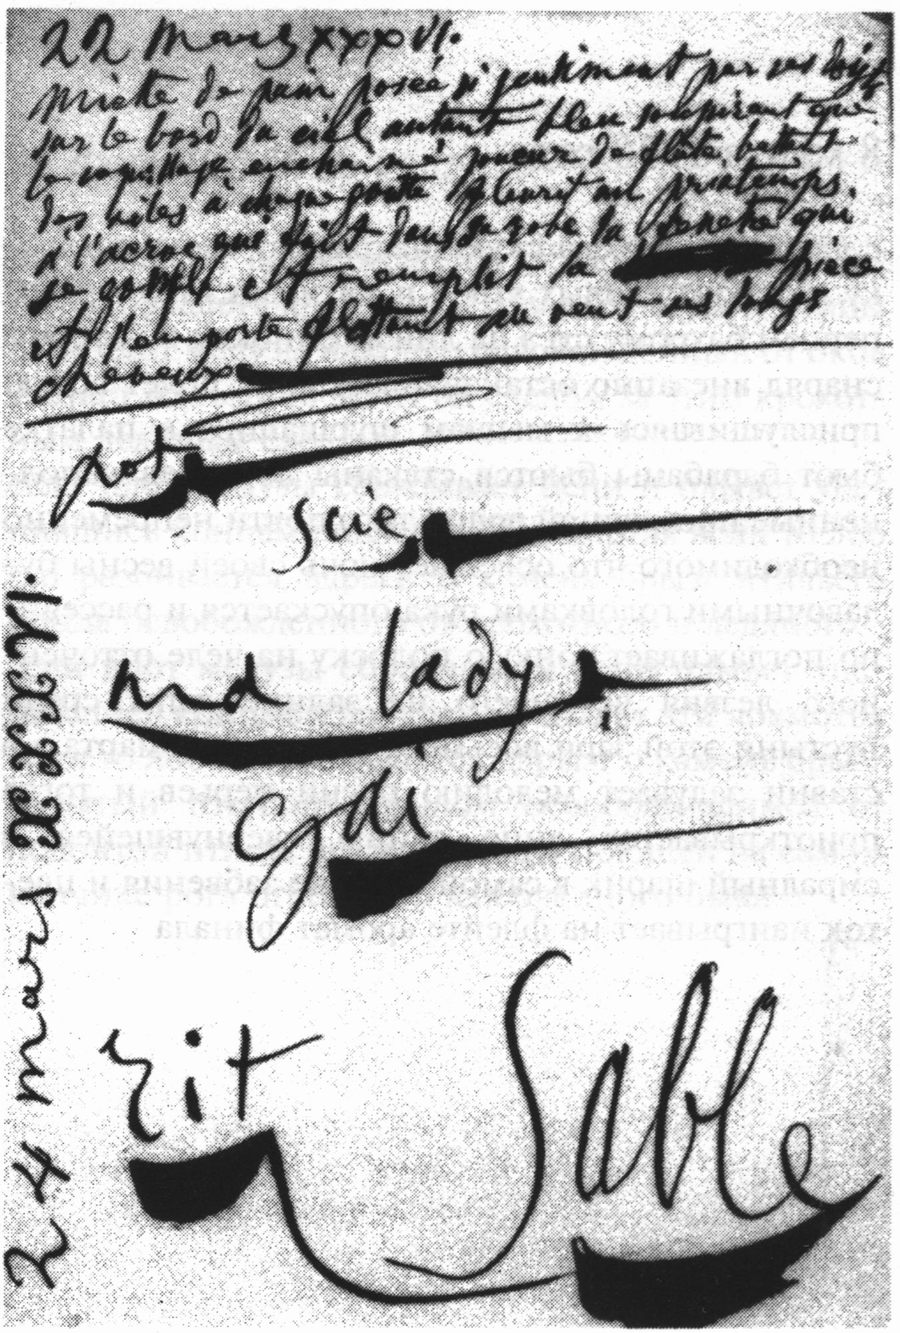 22 mars XXXVI.
miette de pain posée si gentiment par ses doigts
sur le bord du ciel autant bleu soupirant que
le coquillage enchainé joueur de flute battant
des ailes à chaque goutte fleurit au printemps.
à l'acroc que fait dans sa robe la fenetre qui
se gonfle et remplit la pièce
et l'emporte flottant au vent ses longs
cheveux
pot
scie
ma lady
gai
rit
Sable
24 mars XXXVI.